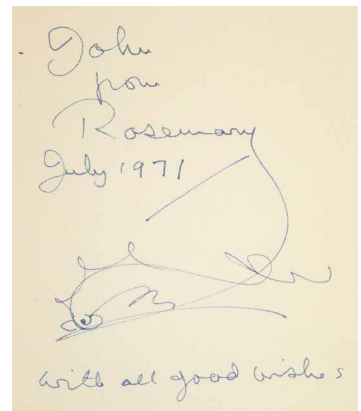 John
from
Rosemary
July 1971
with all good wishes